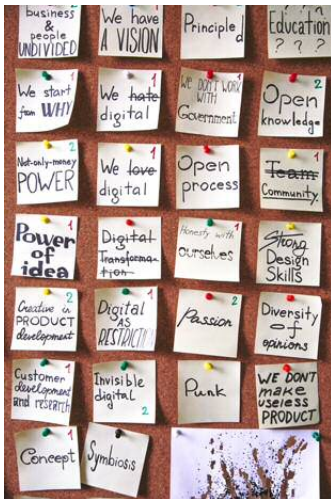 business
&
people
UNDIVIDED
We have
A VISION
Principled
Education
? ? ?
2
We start
from WHY
1
We hate
digital
1
WE DON'T WORK
WITH
Government
1
Open
knowledge
2
Not-only-money
POWER
2
We love
digital
1
Open
process
Team
Community
1
Power
of
idea
1
Digital
Transforma-
tion
Honesty with
ourselves
1
Strong
Design
Skills
Creative in
PRODUCT
development
2
Digital
AS
RESTRICTION
1
Passion
2
Diversity
of
opinions
Customer
development
and research
1
Invisible
digital
2
Punk
WE DONT
make
useless
PRODUCT
1
Concept
1
Symbiosis